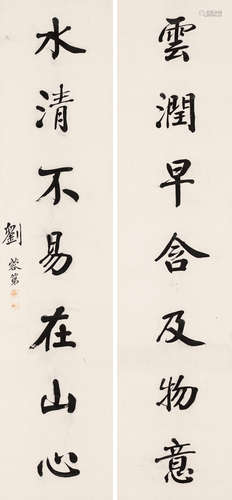 雲潤早含及物意
水清不易在山心
劉蓉第